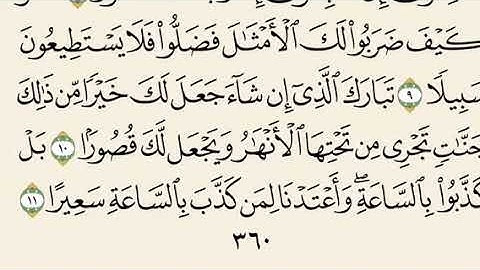 كَيْفَ ضَرَبُوا۟ لَكَ ٱلْأَمْثَـٰلَ فَضَلُّوا۟ فَلَا يَسْتَطِيعُونَ
سَبِيلًا ٩ تَبَارَكَ ٱلَّذِىٓ إِن شَآءَ جَعَلَ لَكَ خَيْرًا مِّن ذَٰلِكَ
جَنَّـٰتٍ تَجْرِى مِن تَحْتِهَا ٱلْأَنْهَـٰرُ وَيَجْعَل لَّكَ قُصُورًۢا ١٠ بَلْ
كَذَّبُوا۟ بِٱلسَّاعَةِ ۖ وَأَعْتَدْنَا لِمَن كَذَّبَ بِٱلسَّاعَةِ سَعِيرًا ١١
٣٦٠